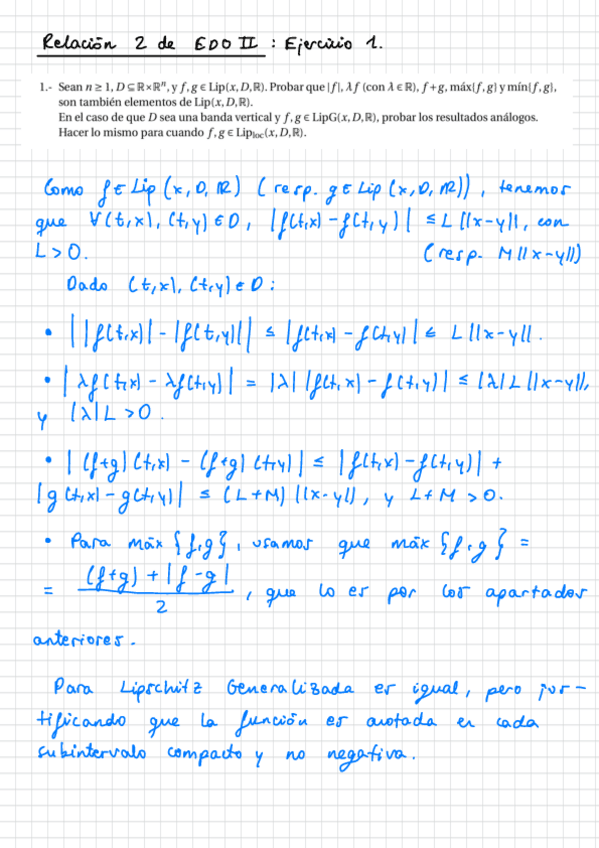 Relación 2 de EDO II : Ejercicio 1.
1.- Sean n ≥ 1, D ⊆ ℝ×ℝⁿ, y f, g ∈ Lip(x, D, ℝ). Probar que |f|, λf (con λ ∈ ℝ), f + g, máx{f, g} y mín{f, g},
son también elementos de Lip(x, D, ℝ).
En el caso de que D sea una banda vertical y f, g ∈ LipG(x, D, ℝ), probar los resultados análogos.
Hacer lo mismo para cuando f, g ∈ Lip_loc(x, D, ℝ).
Como f ∈ Lip (x, D, ℝ) (resp. g ∈ Lip (x, D, ℝ)), tenemos
que ∀(t,x), (t,y) ∈ D, |f(t,x) - f(t,y)| ≤ L ||x-y||, con
L > 0. (resp. M ||x-y||)
Dado (t,x), (t,y) ∈ D :
• ||f(t,x)| - |f(t,y)|| ≤ |f(t,x) - f(t,y)| ≤ L ||x-y||.
• |λf(t,x) - λf(t,y)| = |λ| |f(t,x) - f(t,y)| ≤ |λ| L ||x-y||,
y |λ| L > 0.
• |(f+g)(t,x) - (f+g)(t,y)| ≤ |f(t,x) - f(t,y)| +
|g(t,x) - g(t,y)| ≤ (L+M) ||x-y||, y L+M > 0.
• Para máx {f,g}, usamos que máx {f,g} =
= (f+g) + |f-g| / 2 , que lo es por los apartados
anteriores.
Para Lipschitz Generalizada es igual, pero jus-
tificando que la función es acotada en cada
subintervalo compacto y no negativa.